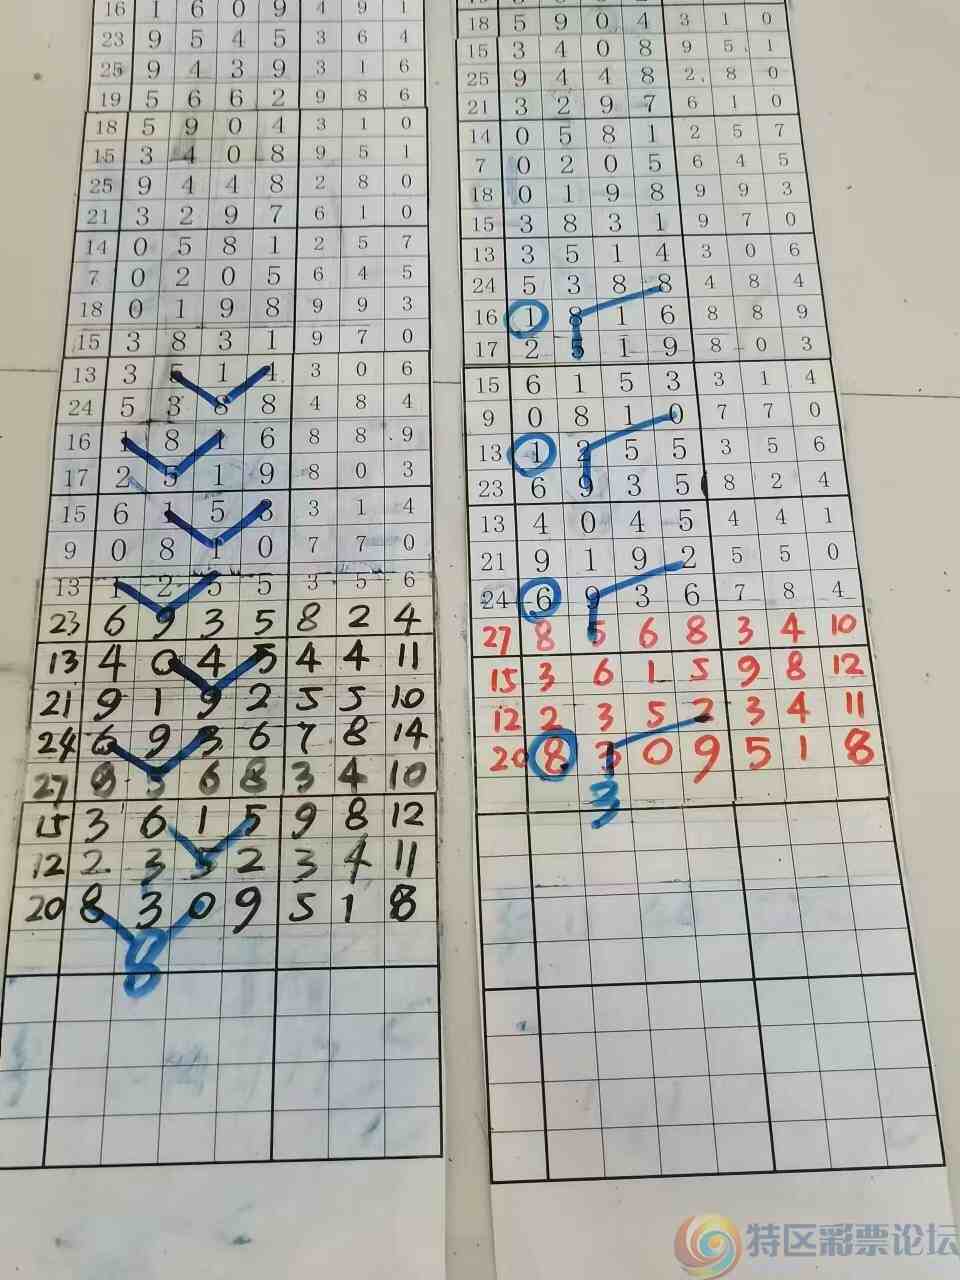 16 1 6 0 9 4 9 1
23 9 5 4 5 3 6 4
25 9 4 3 9 3 1 6
19 5 6 6 2 9 8 6
18 5 9 0 4 3 1 0
15 3 4 0 8 9 5 1
25 9 4 4 8 2 8 0
21 3 2 9 7 6 1 0
14 0 5 8 1 2 5 7
7 0 2 0 5 6 4 5
18 0 1 9 8 9 9 3
15 3 8 3 1 9 7 0
13 3 5 1 4 3 0 6
24 5 3 8 8 4 8 4
16 1 8 1 6 8 8 9
17 2 5 1 9 8 0 3
15 6 1 5 3 3 1 4
9 0 8 1 0 7 7 0
13 1 2 5 5 3 5 6
23 6 9 3 5 8 2 4
13 4 0 4 5 4 4 11
21 9 1 9 2 5 5 10
24 6 9 3 6 7 8 14
27 8 5 6 8 3 4 10
15 3 6 1 5 9 8 12
12 2 3 5 2 3 4 11
20 8 3 0 9 5 1 8
8
18 5 9 0 4 3 1 0
15 3 4 0 8 9 5 1
25 9 4 4 8 2 8 0
21 3 2 9 7 6 1 0
14 0 5 8 1 2 5 7
7 0 2 0 5 6 4 5
18 0 1 9 8 9 9 3
15 3 8 3 1 9 7 0
13 3 5 1 4 3 0 6
24 5 3 8 8 4 8 4
16 1 8 1 6 8 8 9
17 2 5 1 9 8 0 3
15 6 1 5 3 3 1 4
9 0 8 1 0 7 7 0
13 1 2 5 5 3 5 6
23 6 9 3 5 8 2 4
13 4 0 4 5 4 4 1
21 9 1 9 2 5 5 0
24 6 9 3 6 7 8 4
27 8 5 6 8 3 4 10
15 3 6 1 5 9 8 12
12 2 3 5 2 3 4 11
20 8 3 0 9 5 1 8
3
特区彩票论坛